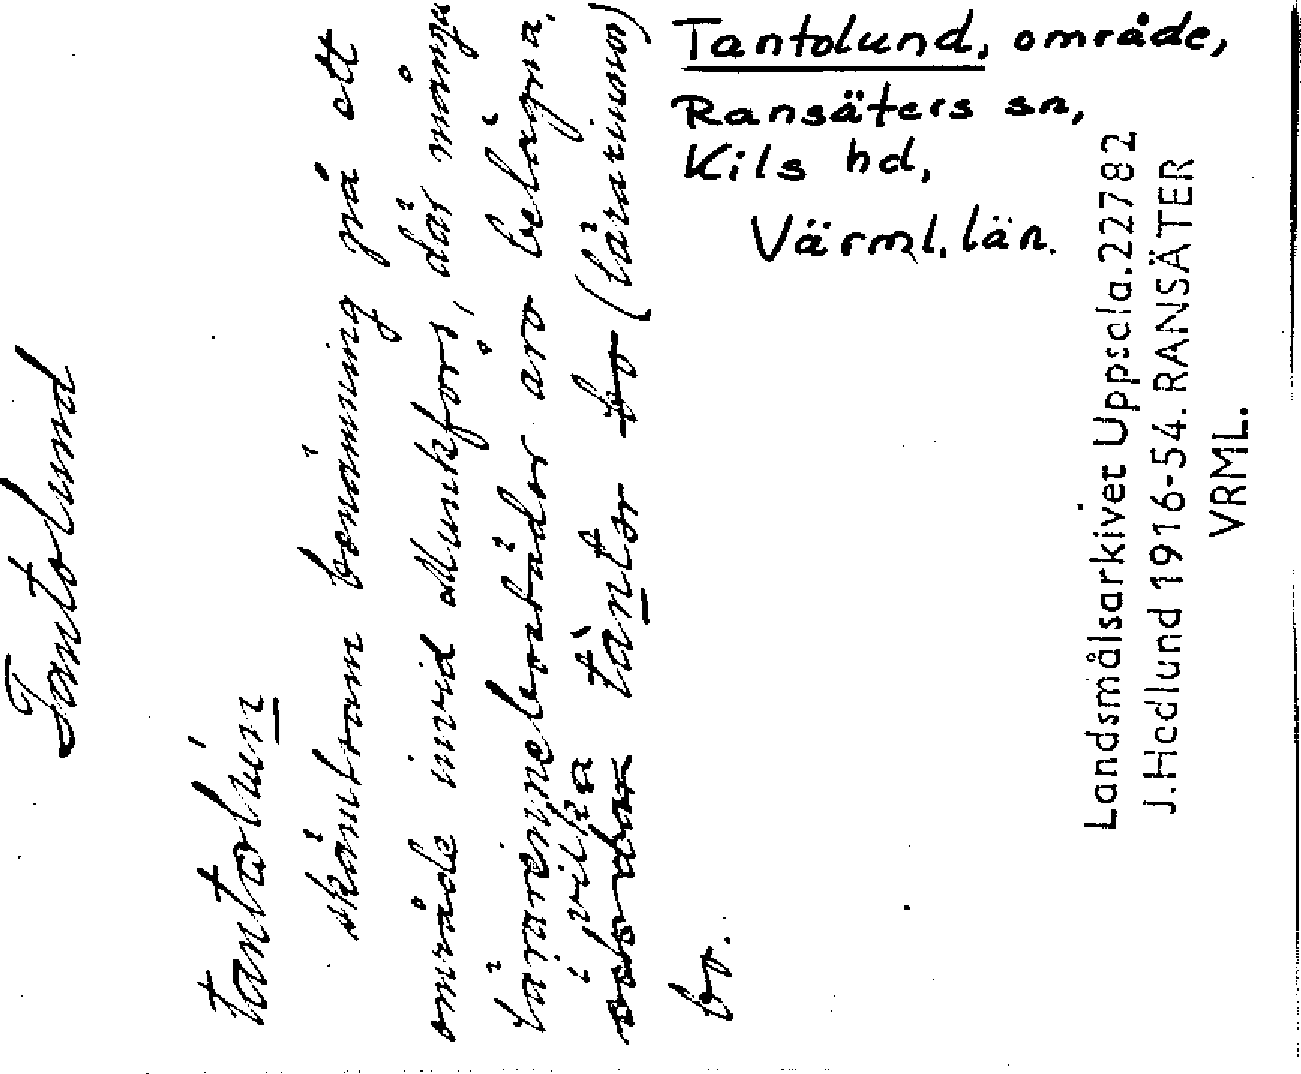 Tantolund, område,
Ransäters sn,
Kils hd,
Värml. län.
Tantolund
tantolun
skämtsam benämning på ett
område invid Munkfors, där många
lärarinnebostäder äro belägna,
i vilka
tanter bo (lärarinnor)
bo.
Landsmålsarkivet Uppsala. 22782
J. Hedlund 1916-54. RANSÄTER
VRML.